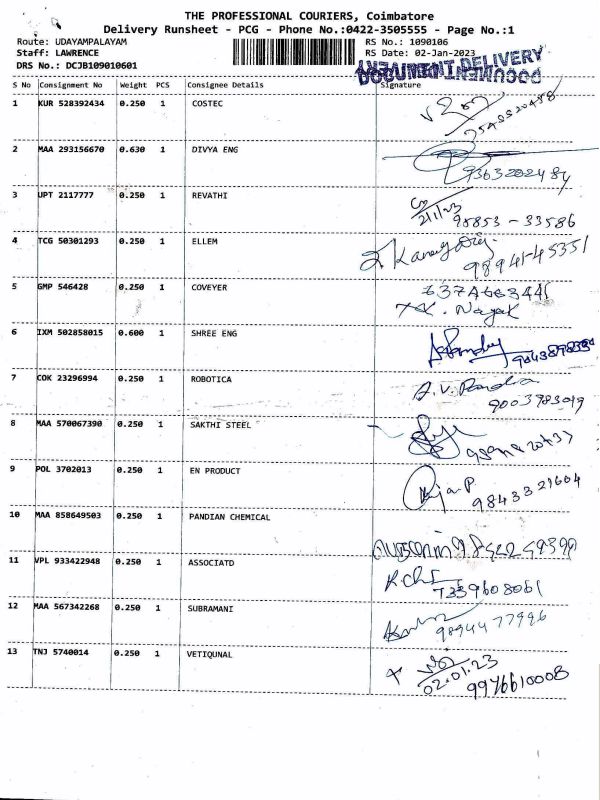 THE PROFESSIONAL COURIERS, Coimbatore
Delivery Runsheet - PCG - Phone No.:0422-3505555 - Page No.:1
Route: UDAYAMPALAYAM RS No.: 1090106
Staff: LAWRENCE RS Date: 02-Jan-2023
DRS No.: DCJB109010601 DOCUMENT DELIVERY
S No Consignment No Weight PCS Consignee Details Signature
1 KUR 528392434 0.250 1 COSTEC
2 MAA 293156670 0.630 1 DIVYA ENG 9363202484
3 UPT 2117777 0.250 1 REVATHI 2/1/23 98853-33586
4 TCG 50301293 0.250 1 ELLEM 98941-45351
5 GMP 546428 0.250 1 COVEYER 6374663441
Nayak
6 IXM 502858015 0.600 1 SHREE ENG
7 COK 23296994 0.250 1 ROBOTICA A.V.
9003983019
8 MAA 570067390 0.250 1 SAKTHI STEEL
9 POL 3702013 0.250 1 EN PRODUCT 98433 21604
10 MAA 858649503 0.250 1 PANDIAN CHEMICAL
11 VPL 933422948 0.250 1 ASSOCIATD 7339608061
12 MAA 567342268 0.250 1 SUBRAMANI 9894477996
13 TNJ 5740014 0.250 1 VETIQUNAL 02.01.23
9976610008